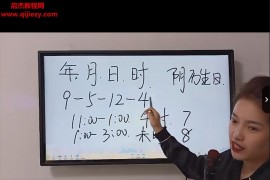 启杰教程网
www.qijiejy.com
年.月.日.时. 阴历生日
9-5-12-4
11:00-1:00. 午时 7
1:00-3:00. 未 8